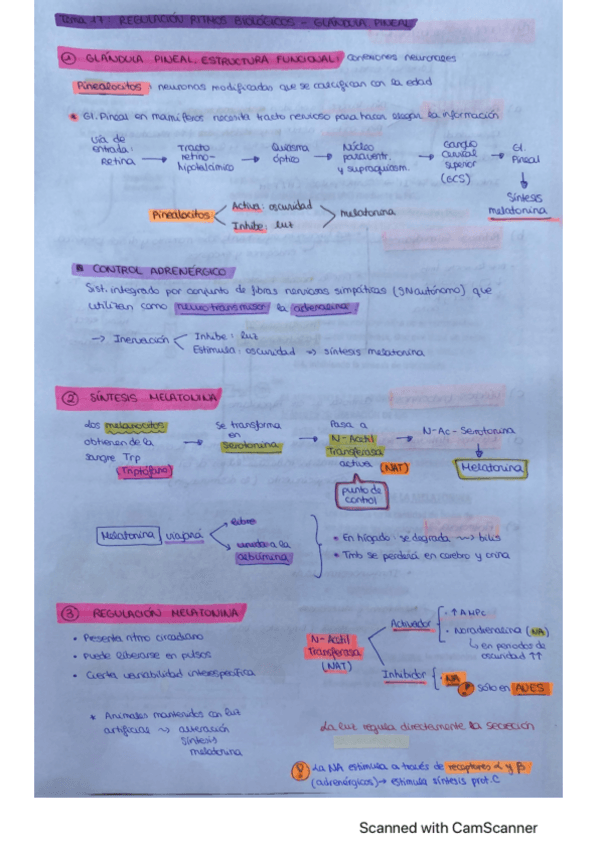 Tema 17: REGULACIÓN RITMOS BIOLÓGICOS - GLÁNDULA PINEAL
① GLÁNDULA PINEAL. ESTRUCTURA FUNCIONAL: conexiones neuronales
Pinealocitos: neuronas modificadas que se calcifican con la edad
* Gl. Pineal en mamíferos necesita tracto nervioso para hacer llegar la información
Vía de entrada: Retina → Tracto retino-hipotalámico → Quiasma óptico → Núcleo paraventr. y supraquiasm. → Ganglio cervical superior (GCS) → Gl. Pineal
↓
Síntesis melatonina
Pinealocitos < Activa: oscuridad
Inhibe: luz > melatonina
CONTROL ADRENÉRGICO
Sist. integrado por conjunto de fibras nerviosas simpáticas (SN autónomo) que
utilizan como neurotransmisor la adrenalina
→ Inervación < Inhibe: luz
Estimula: oscuridad → síntesis melatonina
② SÍNTESIS MELATONINA
Los melanocitos obtienen de la sangre Trp (Triptófano) → Se transforma en Serotonina → Pasa a N-Acetil Transferasa activa (NAT) → N-Ac-Serotonina
↓
Melatonina
punto de control
Melatonina viajará < libre
unida a la albúmina
• En hígado: se degrada → bilis
• Tmb se perderá en cerebro y orina
③ REGULACIÓN MELATONINA
• Presenta ritmo circadiano
• Puede liberarse en pulsos
• Cierta variabilidad interespecífica
* Animales mantenidos con luz
artificial → alteración
síntesis
melatonina
N-Acetil Transferasa (NAT)
Activador
• ↑ AMPc
• Noradrenalina (NA)
↳ en periodos de
oscuridad ↑↑
Inhibidor
• NA
! Sólo en AVES
La luz regula directamente la secreción
! La NA estimula a través de receptores α y β
(adrenérgicos) → estimula síntesis prot. C
Scanned with CamScanner